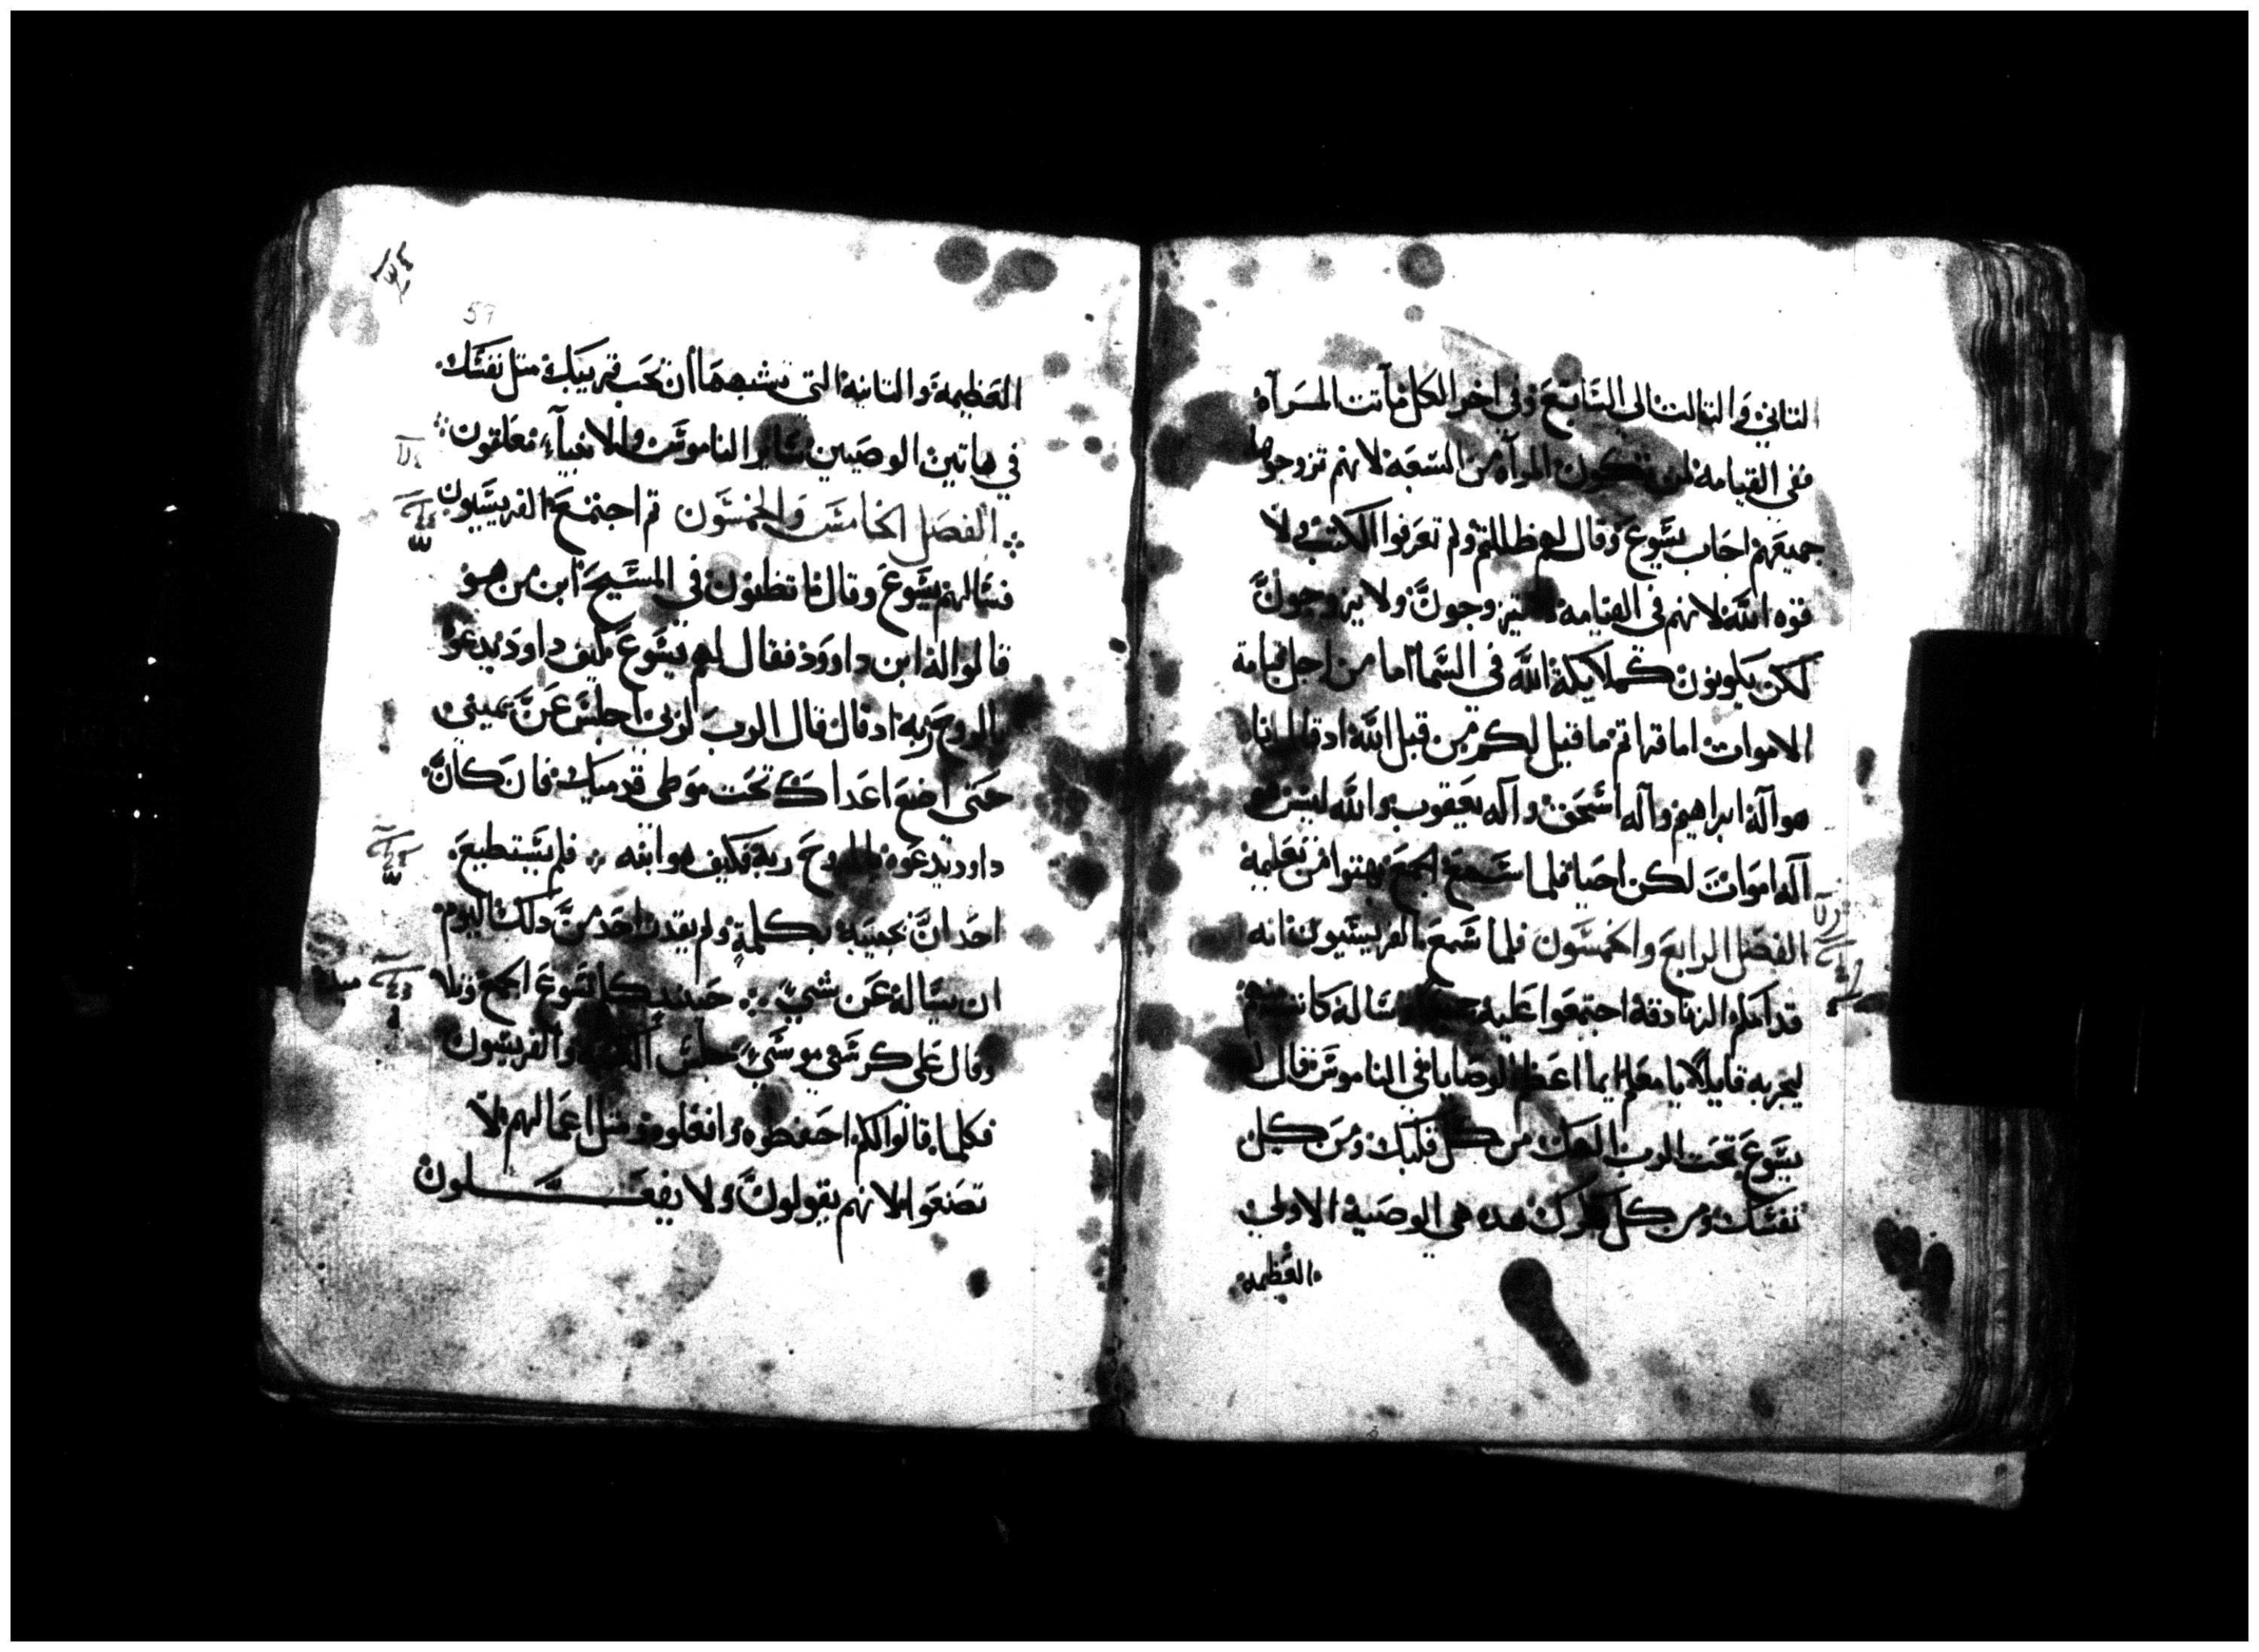 التاني والتالت الى السابع وفي اخر الكل ماتت المرآه
ففي القيامه لمن تكون المرآه من السبعه لانهم تزوجوها
جميعهم اجاب يسوع وقال لهم ظللتم ولم تعرفوا الكتب ولا
قوه الله لانهم في القيامه لا يتزوجون ولا يزوجون
لكن يكونون كملايكة الله في السما اما من اجل قيامة
الاموات اما قراتم ما قيل لكم من قبل الله اد قال انا
هو آله ابراهيم وآله اسحق وآله يعقوب والله ليس هو
آله اموات لكن احيا فلما سمع الجمع بهتوا من تعليمه
الفصل الرابع والخمسون فلما سمع الفريسيون انه
قد اخلم الزنادقه اجتمعوا عليه وساله كاتب منهم
ليجربه قايلا يا معلم ايما اعظم الوصايا في الناموس قال له
يسوع تحب الرب الهك من كل قلبك ومن كل
نفسك ومن كل فكرك هده هي الوصية الاولى
العظيمه
57
العظيمة والتانية التي تشبهها ان تحب قريبك متل نفسك
في هاتين الوصيتين ساير الناموس والانبيآء معلقون
الفصل الخامس والخمسون تم اجتمع الفريسيون
فسالهم يسوع وقال ما تظنون في المسيح ابن من هو
قالوا له ابن داوود فقال لهم يسوع كيف داود يدعوه
بالروح ربه اد قال قال الرب لربي اجلس عن يميني
حتى اضع اعداك تحت موطى قدميك فان كان
داود يدعوه بالروح ربه فكيف هو ابنه فلم يستطيع
احد ان يجيبه بكلمة ولم يقدر احد من دلك اليوم
ان يساله عن شي حينيد كلم يسوع الجمع وتلا
وقال على كرسي موسي جلس الكتبه والفريسيون
فكلما قالوا لكم احفظوه وافعلوه ومتل اعمالهم لا
تصنعوا لانهم يقولون ولا يفعلون